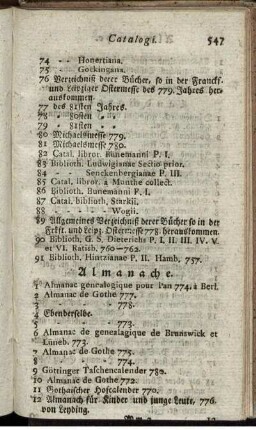 Catalogi. 547
74 - - Honertiana.
75 - - Gockingana.
76 Verzeichniß derer Bücher, so in der Franckf-
und Leipziger Ostermesse des 779. Jahres her-
auskommen.
77 des 81sten Jahres.
78 - 82sten -
79 - 82sten -
80 Michaelsmesse 779.
81 Michaelsmesse 780.
82 Catal. libror. Bunemanni P. I.
83 Biblioth. Ludwigianae Sectio prior.
84 - - Senckenbergianae P. III.
85 Catal. libror. a Monthe collect.
86 Biblioth. Bunemanni P. I.
87 Catal. biblioth. Starkii.
88 - - Wogii.
89 Allgemeines Verzeichniß derer Bücher so in der
Frkft. und Leipz. Ostermesse 778. herauskommen.
90 Biblioth. G. S. Dieterichs P. I. II. III. IV. V.
et VI. Ratisb. 760-762.
91 Biblioth. Hinrzianae P. II. Hamb. 757.
Almanache.
1 Almanac genealogique pour l'an 774. à Berl.
2 Almanac de Gothe 777.
3 - - 778.
4 Ebenderselbe.
5 - - 773.
6 Almanac de genealagique de Brunswick et
Lüneb. 773.
7 Almanac de Gothe 775.
8 - - 774.
9 Göttinger Taschencalender 780.
10 Almanac de Gothe 772.
11 Gothaischer Hofcalender 770.
12 Almanach für Kinder und junge Leute, 776.
von Leyding.